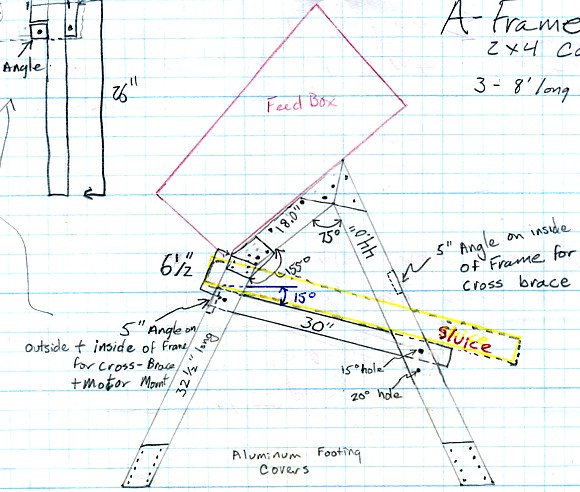 A-Frame
2x4
3 - 8' long
Angle
26"
Feed Box
18.0"
75°
44.0"
155°
6½"
15°
30"
5" Angle on inside
of Frame for
cross brace
Sluice
5" Angle on
outside + inside of Frame
for Cross-Brace
+ Motor Mount
32½" long
15° hole
20° hole
Aluminum Footing
Covers